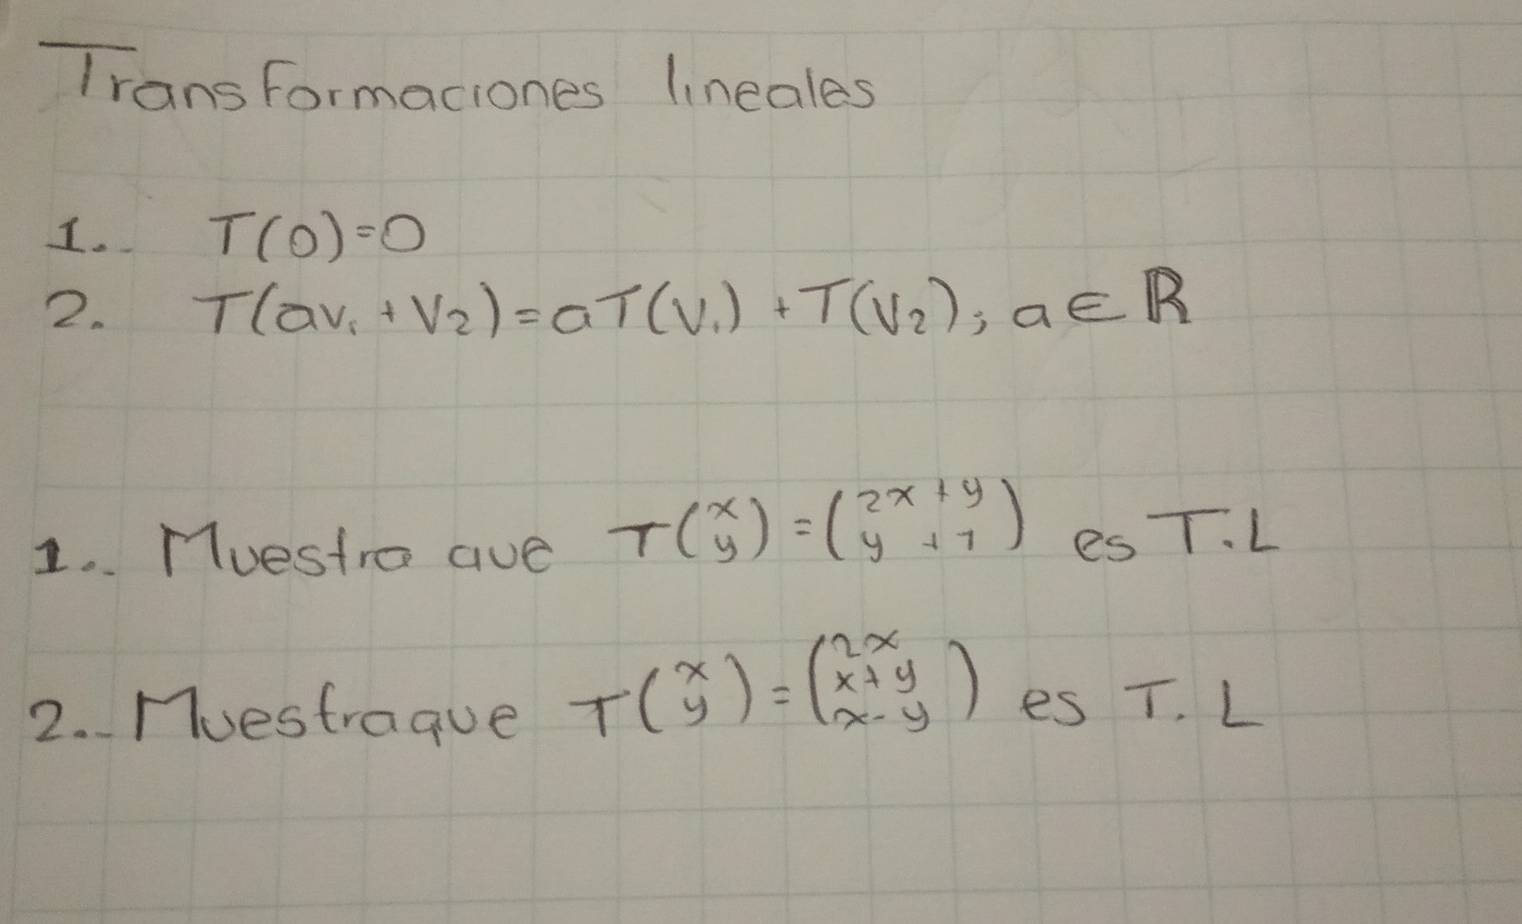 Transformaciones lineales
1.. T(0)=0
2. T(av₁+v₂)=aT(v₁)+T(v₂); a∈ℝ
1.. Muestra que T(x y)=(2x+y y+1) es T.L
2.. Muestra que T(x y)=(2x x+y x-y) es T.L